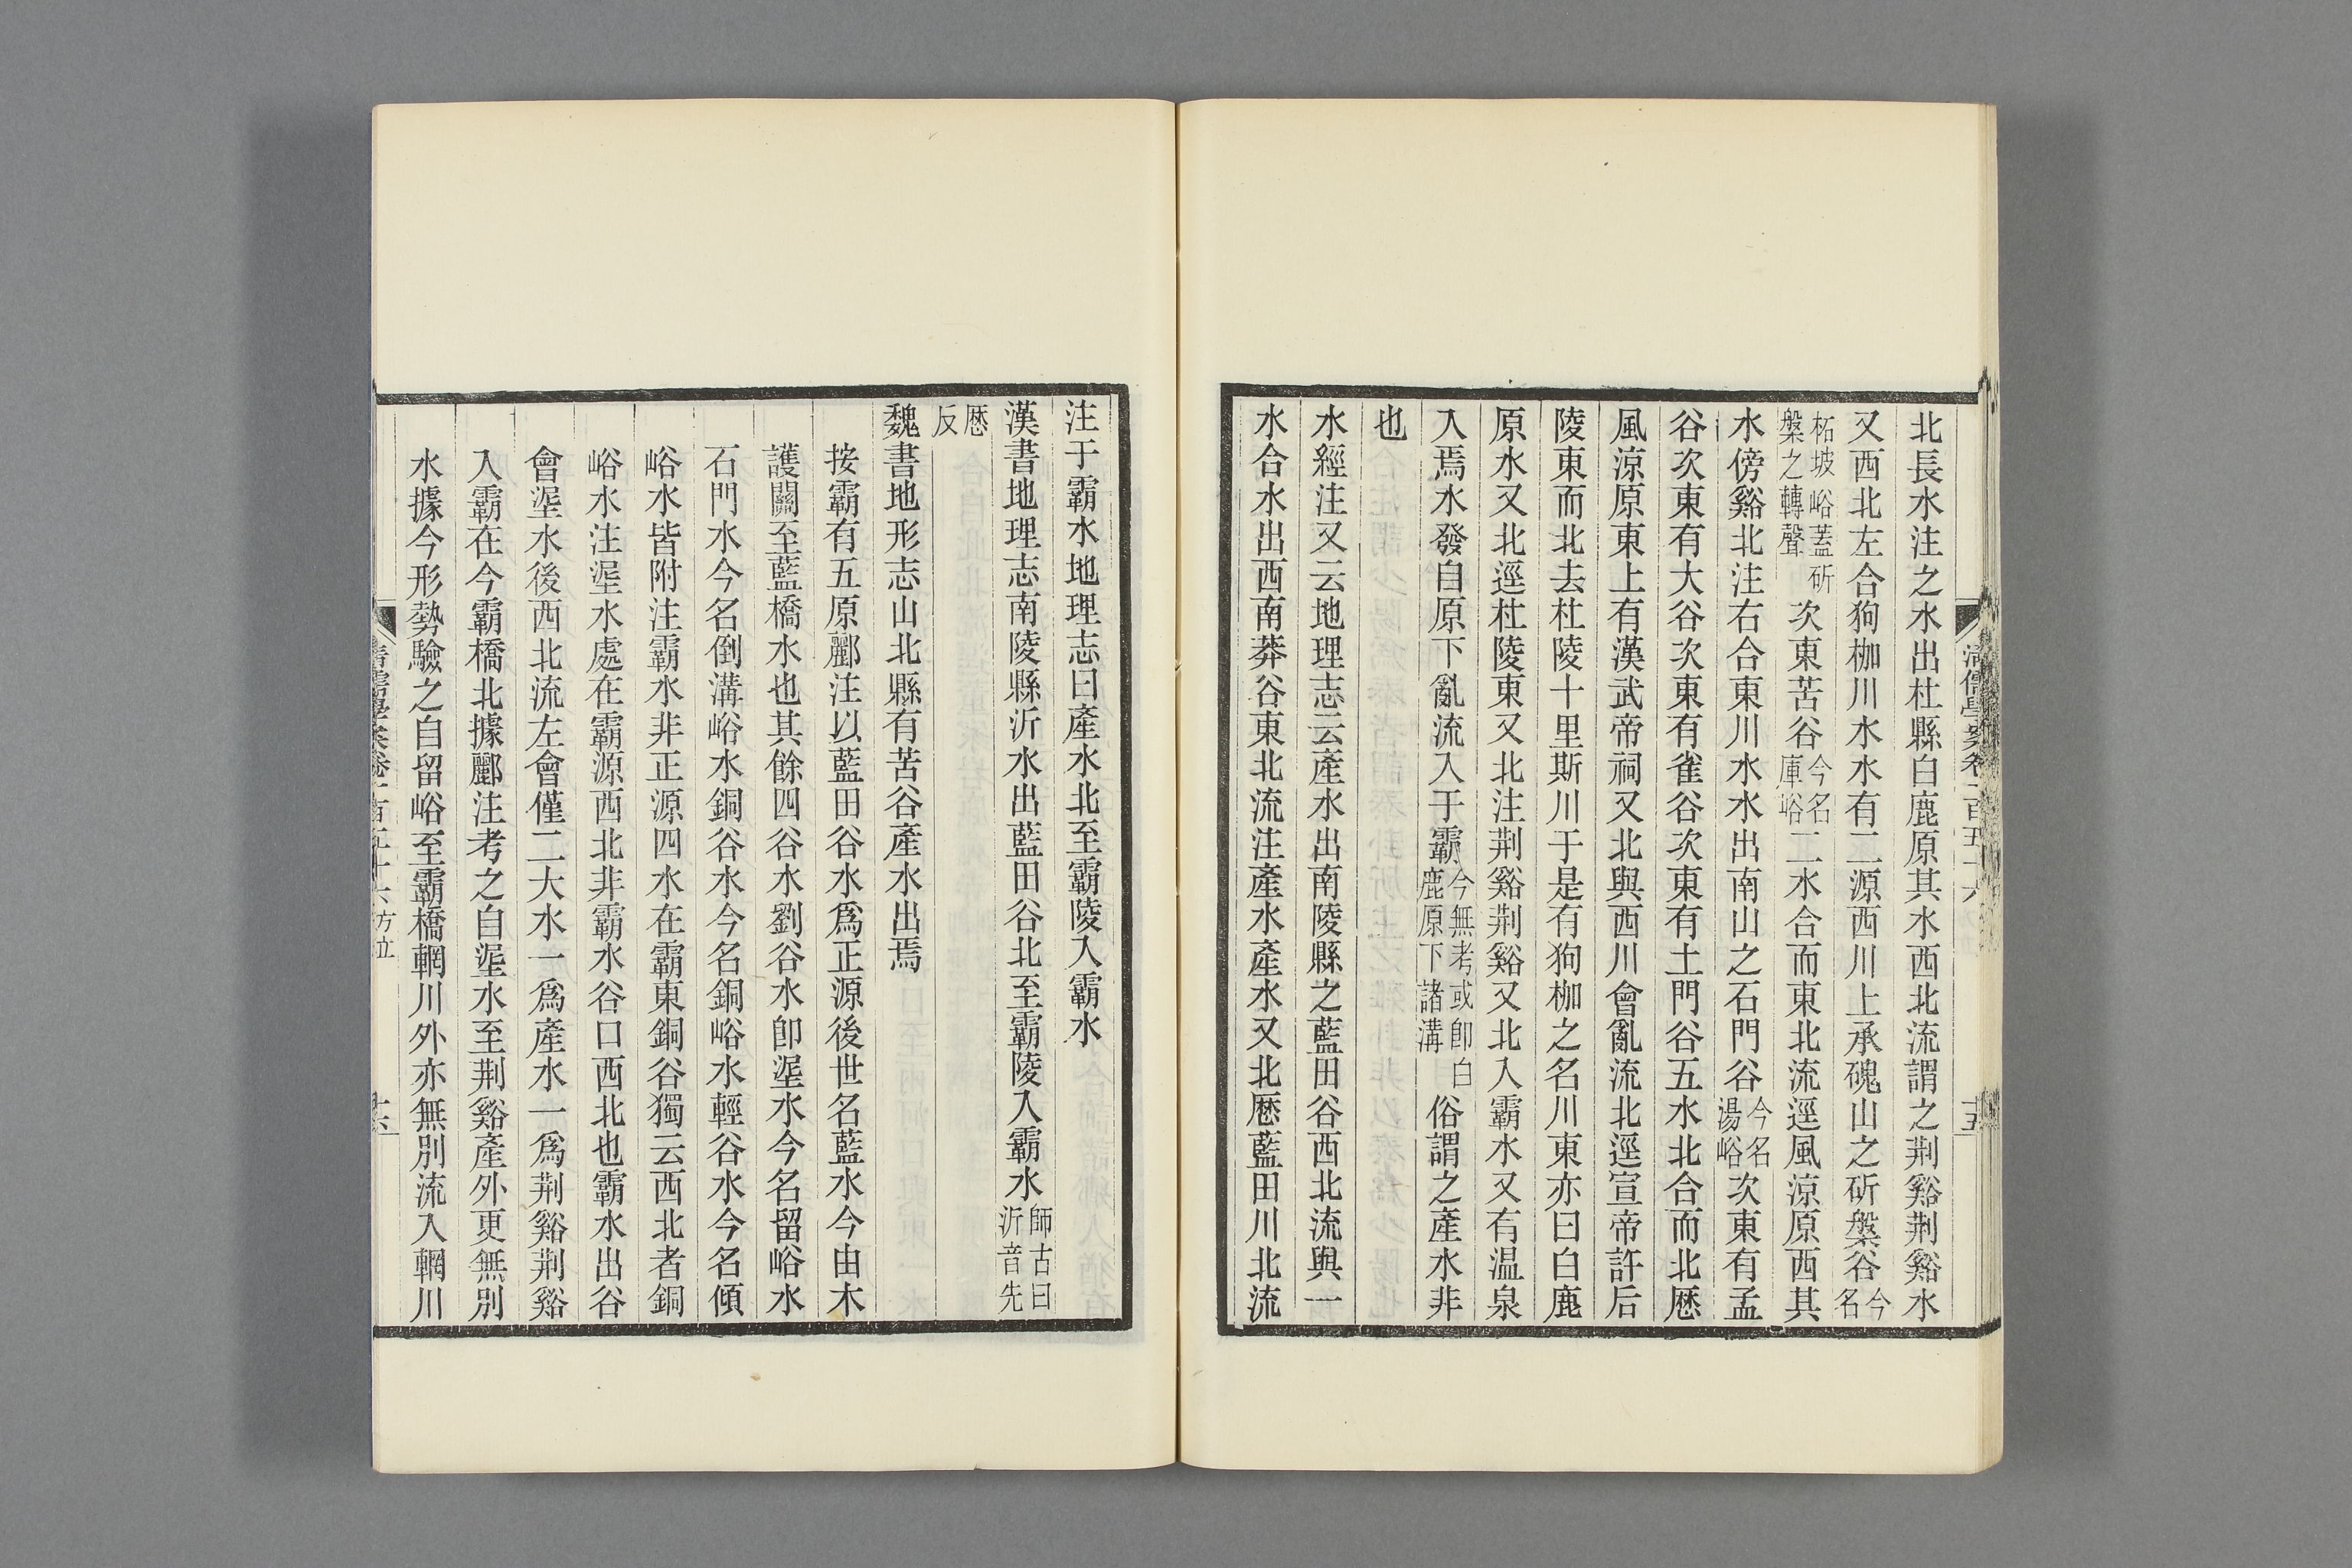 北長水注之水出杜縣白鹿原其水西北流謂之荆谿荆谿水
又西北左合狗枷川水水有二源西川上承磈山之斫槃谷今名
柘坡峪蓋斫槃之轉聲次東苦谷今名庫峪二水合而東北流逕風涼原西其
水傍谿北注右合東川水水出南山之石門谷今名湯峪次東有孟
谷次東有大谷次東有雀谷次東有土門谷五水北合而北歷
風涼原東上有漢武帝祠又北與西川會亂流北逕宣帝許后
陵東而北去杜陵十里斯川于是有狗枷之名川東亦曰白鹿
原水又北逕杜陵東又北注荆谿荆谿又北入霸水又有温泉
入焉水發自原下亂流入于霸今無考或卽白鹿原下諸溝俗謂之產水非
也
水經注又云地理志云產水出南陵縣之藍田谷西北流與一
水合水出西南莽谷東北流注產水產水又北歷藍田川北流
清儒學案卷一百五十六
十五
注于霸水地理志曰產水北至霸陵入霸水
漢書地理志南陵縣沂水出藍田谷北至霸陵入霸水師古曰沂音先
歷反
魏書地形志山北縣有苦谷產水出焉
按霸有五原酈注以藍田谷水爲正源後世名藍水今由木
護關至藍橋水也其餘四谷水劉谷水卽埿水今名留峪水
石門水今名倒溝峪水銅谷水今名銅峪水輕谷水今名傾
峪水皆附注霸水非正源四水在霸東銅谷獨云西北者銅
峪水注埿水處在霸源西北非霸水谷口西北也霸水出谷
會埿水後西北流左會僅二大水一爲產水一爲荆谿荆谿
入霸在今霸橋北據酈注考之自埿水至荆谿產外更無別
水據今形勢驗之自留峪至霸橋輞川外亦無別流入輞川
清儒學案卷一百五十六 方立
十六